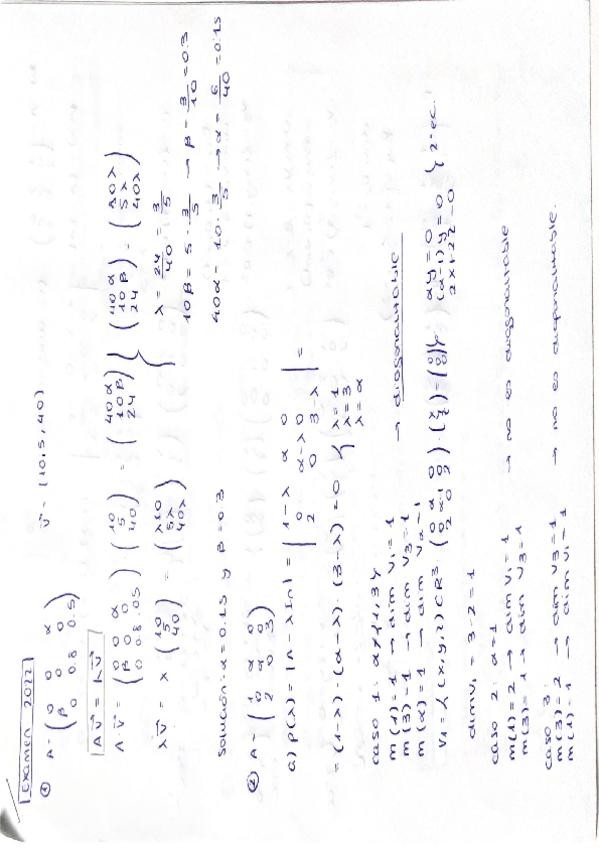 Examen 2022
① A = ( 0 0 α / β 0 0 / 0 0.8 0.5 ) v⃗ = (10, 5, 40)
Av⃗ = λv⃗
A·v⃗ = ( 0 0 α / β 0 0 / 0 0.8 0.5 ) · ( 10 / 5 / 40 ) = ( 40α / 10β / 24 )
λv⃗ = λ ( 10 / 5 / 40 ) = ( λ10 / 5λ / 40λ )
( 40α / 10β / 24 ) = ( 10λ / 5λ / 40λ )
λ = 24/40 = 3/5
10β = 5 · 3/5 → β = 3/10 = 0.3
40α = 10 · 3/5 → α = 6/40 = 0.15
Solución: α = 0.15 y β = 0.3
② A = ( 1 α 0 / 0 α 0 / 2 0 3 )
a) p(λ) = |A - λIn| = | 1-λ α 0 / 0 α-λ 0 / 2 0 3-λ | =
= (1-λ) · (α-λ) · (3-λ) = 0 { λ = 1 / λ = 3 / λ = α
caso 1: α ≠ {1, 3}
m(1) = 1 → dim V₁ = 1
m(3) = 1 → dim V₃ = 1 → diagonalizable
m(α) = 1 → dim Vα = 1
V₁ = { (x, y, z) ⊂ R³ ( 0 α 0 / 0 α-1 0 / 2 0 2 ) · ( x / y / z ) = ( 0 / 0 / 0 ) } αy = 0 / (α-1)y = 0 / 2x+2z = 0 } 2 ec.
dim V₁ = 3 - 2 = 1
caso 2: α = 1
m(1) = 2 → dim V₁ = 1 → no es diagonalizable
m(3) = 1 → dim V₃ = 1
caso 3:
m(3) = 2 → dim V₃ = 1 → no es diagonalizable.
m(1) = 1 → dim V₁ = 1